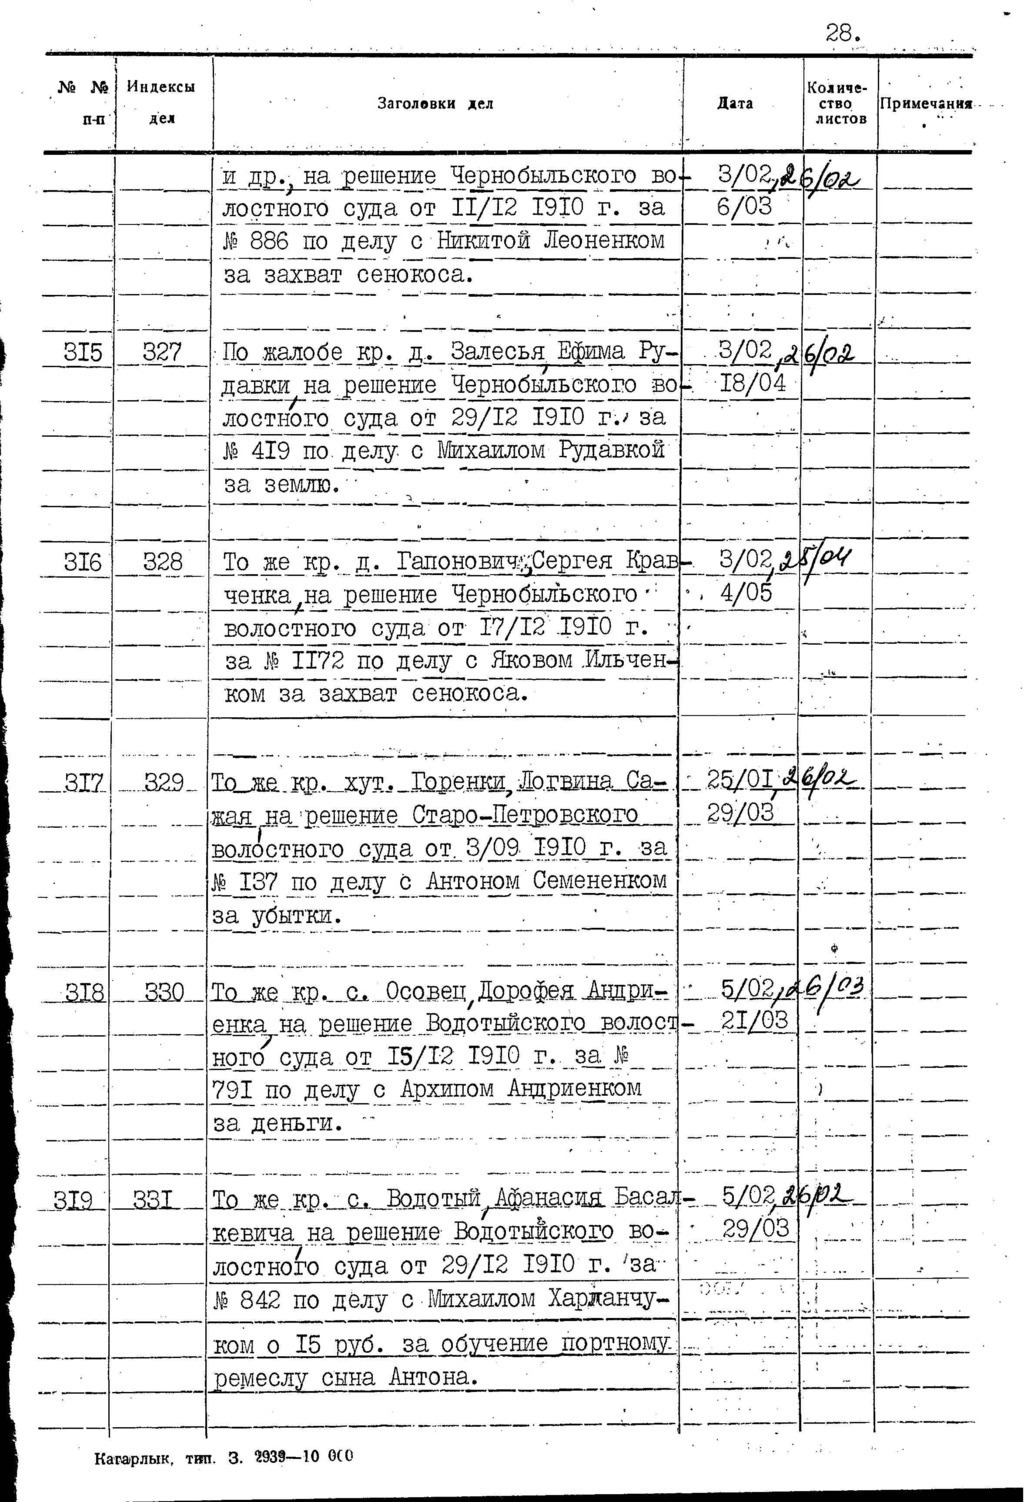 28.
№ № Индексы Заголовки дел Дата Количе- Примечания
п-п дел ство
листов
и др., на решение Чернобыльского во- 3/02, 26/02
лостного суда от II/I2 I9I0 г. за 6/03
№ 886 по делу с Никитой Леоненком
за захват сенокоса.
3I5 327 По жалобе кр. д. Залесья, Ефима Ру- 3/02, 26/02
давки, на решение Чернобыльского во- I8/04
лостного суда от 29/I2 I9I0 г. за
№ 4I9 по делу с Михаилом Рудавкой
за землю.
3I6 328 То же кр. д. Гапонович, Сергея Крав- 3/02, 25/04
ченка, на решение Чернобыльского 4/05
волостного суда от I7/I2 I9I0 г.
за № II72 по делу с Яковом Ильчен-
ком за захват сенокоса.
3I7 329 То же кр. хут. Горенки, Логвина Са- 25/0I, 26/02
жая, на решение Старо-Петровского 29/03
волостного суда от 3/09 I9I0 г. за
№ I37 по делу с Антоном Семененком
за убытки.
3I8 330 То же кр. с. Осовец, Дорофея Андри- 5/02, 26/03
енка, на решение Водотыйского волост- 2I/03
ного суда от I5/I2 I9I0 г. за №
79I по делу с Архипом Андриенком
за деньги.
3I9 33I То же кр. с. Водотый, Афанасия Басал- 5/02, 26/02
кевича, на решение Водотыйского во- 29/03
лостного суда от 29/I2 I9I0 г. за
№ 842 по делу с Михаилом Харланчу-
ком о I5 руб. за обучение портному
ремеслу сына Антона.
Кагарлык, тип. З. 2939—10 000